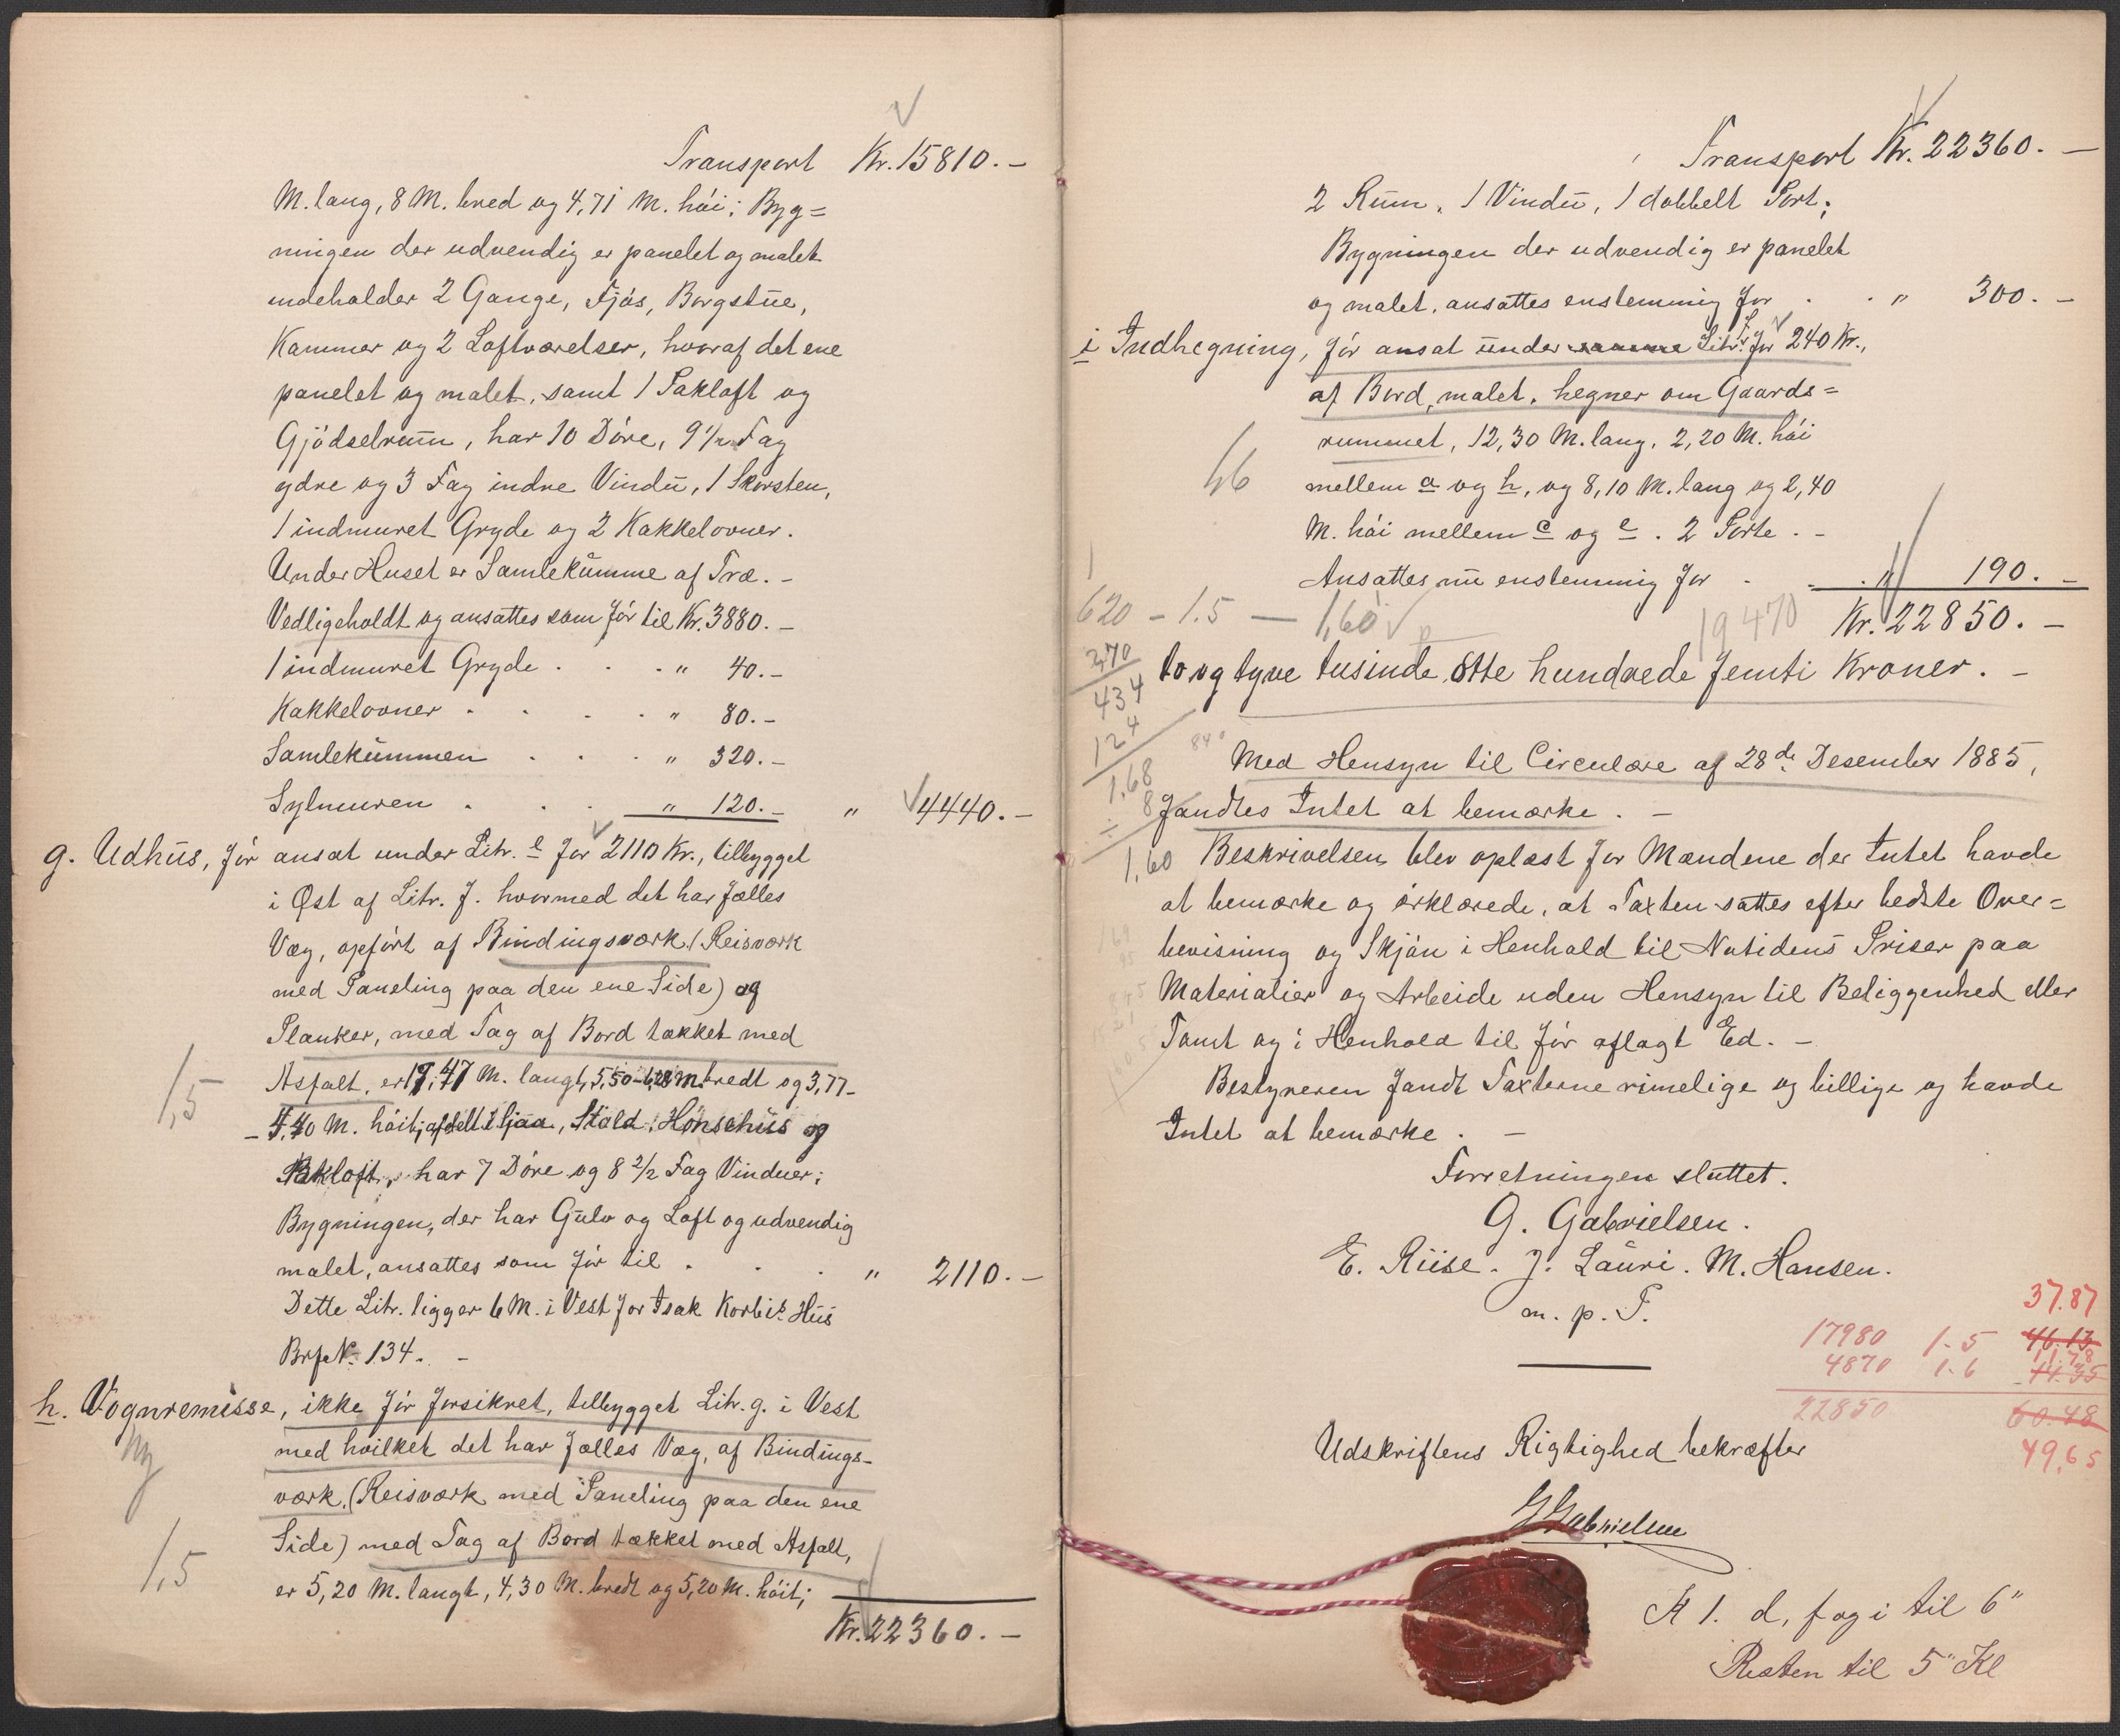 Transport Kr. 15810. –
M. lang, 8 M. bred og 4,71 M. høi; Byg=
ningen der udvendig er panelet og malet
indeholder 2 Gange, Fjøs, Borgstue,
Kammer og 2 Loftværelser, hvoraf det ene
panelet og malet, samt 1 Takloft og
Gjødselrum, har 10 Døre, 9 1/2 Fag
ydre og 3 Fag indre Vindu, 1 Skorsten,
1 indmuret Gryde og 2 Kakkelovner.
Under Huset er Samlekumme af Træ. –
Vedligeholdt og ansattes som før til Kr. 3880. –
1 indmuret Gryde . . . " 40. –
Kakkelovner . . . . " 80. –
Samlekummen . . . " 320. –
Sylmuren . . . " 120. – " 4440. –
g. Udhus, før ansat under Litr. e for 2110 Kr., tilbygget
i Øst af Litr. f. hvormed det har fælles
Væg, opført af Bindingsværk (Reisværk
med Paneling paa den ene Side) og
Planker, med Tag af Bord tækket med
1,5
Asfalt, er 17,47 M. langt, 5,50 – M bredt og 3,77 –
– 4,40 M. høit; afdelt i Ljaa, Stald, Hønsehus og
Takloft, har 7 Døre og 8 2/2 Fag Vinduer;
Bygningen, der har Gulv og Loft og udvendig
malet, ansattes som før til . . . " 2110. –
Dette Litr. ligger 6 M. i Vest for Isak Korbis Hus
BrfN. 134. –
h. Vognremisse, ikke før forsikret, tilbygget Litr. g. i Vest
Ny
med hvilket det har fælles Væg, af Bindings-
værk, (Reisværk med Paneling paa den ene
Side) med Tag af Bord tækket med Asfalt,
1,5
er 5,20 M. langt, 4,30 M. bredt og 5,20 M. høit;
Kr. 22360. –
Transport Kr. 22360. –
2 Rum, 1 Vindu, 1 dobbelt Port;
Bygningen der udvendig er panelet
og malet, ansattes enstemmig for . . " 300. –
i Indhegning, før ansat under samme Litr. f for 240 Kr.,
af Bord, malet, hegner om Gaards=
rummet, 12,30 M. lang, 2,20 M. høi
1,6
mellem a og h, og 8,10 M. lang og 2,40
M. høi mellem c og e. 2 Porte. –
Ansattes nu enstemmig for . . . " 190. –
620 – 1.5 — 1,60
19470
Kr. 22850. –
2,70
434
124
1.68
8
1,60
to og tyve tusinde otte hundrede femti Kroner. –
840
Med Hensyn til Circulære af 28de Desember 1885,
fandtes Intet at bemærke. –
Beskrivelsen blev oplæst for Mændene der Intet havde
at bemærke og erklærede, at Taxten sattes efter bedste Over=
bevisning og Skjøn i Henhold til Nutidens Priser paa
Materialier og Arbeide uden Hensyn til Beliggenhed eller
Tomt og i Henhold til før aflagt Ed. –
Bestyreren fandt Taxterne rimelige og billige og havde
Intet at bemærke. –
Forretningen sluttet.
G. Gabrielsen.
E. Riise. J. Lauri. M. Hansen.
m. p. P.
37.87
17980 1.5 46.13
4870 1.6 11.78
22850 60.48
49,65
Udskriftens Rigtighed bekræfter
G Gabrielsen
Kl 1. d, f og i til 6"
Resten til 5" Kl